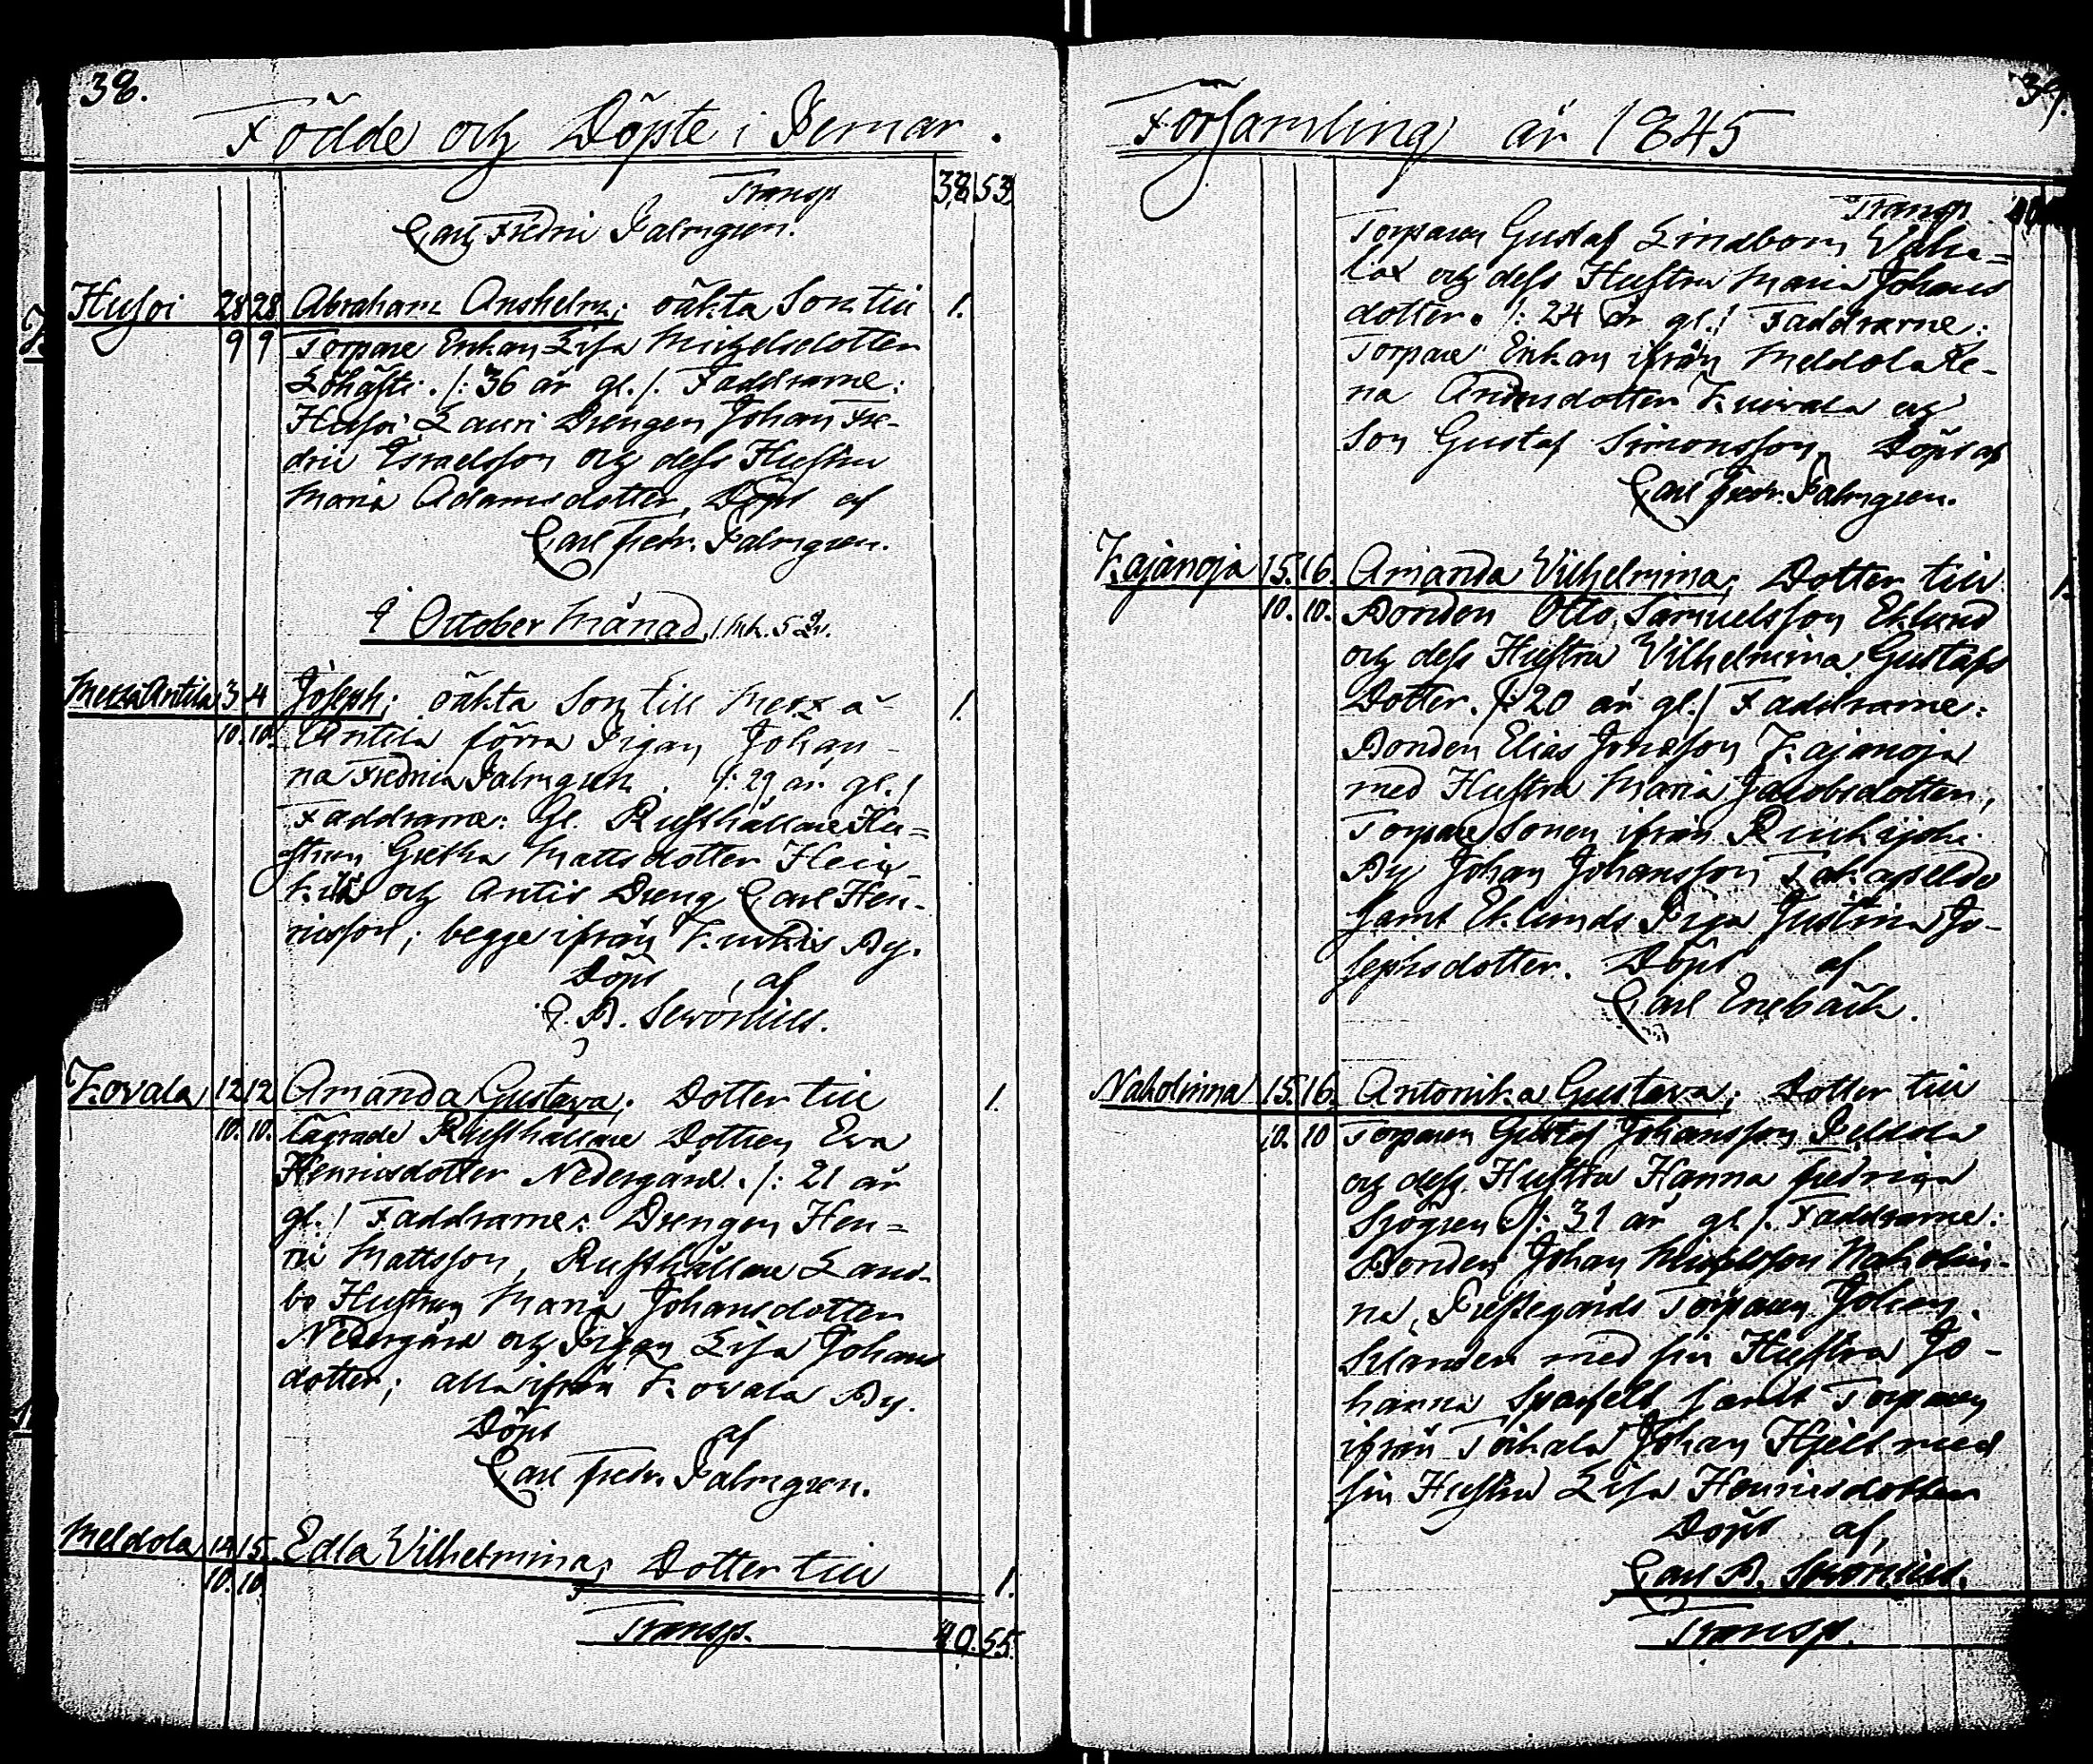 38.
Födde och Döpte i Pemar.
Transp 38 53
Carl Fredric Palmgren.
Husoi 28 28 Abraham Anshelm; oäkta Son till 1.
9 9 Torpare Enkan Lisa Michelsdotter
/: 36 år gl. /. Faddrarne:
Husoi Lauri Drengen Johan Fre-
dric Israelsson och dess Hustru
Maria Adamsdotter, Döpt af
Carl Fredr. Palmgren.
October Månad
Metzä Antila 3 4 Joseph; oäkta Son till Metzä- 1.
10. 10. Antila förra Pigan Johan-
na Fredrica Palmgren. /: 29 år gl. /
Faddrarne: Gl. Rusthållare Hu=
strun Gretha Mattsdotter Heik-
kilä och Antis Dreng Carl Hen-
ricsson; begge ifrån By.
Döpt af
C. B. Sevonius.
Kovala 12 12 Amanda Gustava; Dotter till 1.
10. 10. lägrade Rusthållare Dottren Eva
Henricsdotter Nedergård. /: 21 år
gl. / Faddrarne: Drengen Hen=
ric Mattsson, Rusthållare Land-
bo Hustrun Maria Johansdotter
Nedergård och Pigan Lisa Johans
dotter; alla ifrån Kovala By.
Döpt af
Carl Fredr. Palmgren.
Meldola 14 15. Edla Vilhelmina; Dotter till 1.
10. 10.
Transp. 40. 55.
39.
Församling år 1845
Transp 40
Torparen Gustaf Lindbom
och dess Hustru Maria Johans
dotter. /: 24 år gl. / Faddrarne:
Torpare Enkan ifrån Meldola Le-
na och
Son Gustaf Simonsson. Döpt af
Carl Fredr. Palmgren.
Kajanoja 15. 16. Amanda Vilhelmina; Dotter till 1.
10. 10. Bonden Otto Samuelsson Eklund
och dess Hustru Vilhelmina Gustafs
Dotter. /: 20 år gl. / Faddrarne:
Bonden Elias Jonasson Kajanoja
med Hustru Maria Jacobsdotter,
Torpare Sonen ifrån Ruukijoki
By Johan Johansson Takapeldo
samt Eklunds Piga Justina Jo-
sephsdotter. Döpt af
Carl Enebäck.
Nakolinna 15. 16. Antonika Gustava; Dotter till
10. 10 Torparen Gustaf Johansson Peldola
och dess Hustru Hanna Fredrica
Sjögren /: 31 år gl. /. Faddrarne:
Bonden Johan Michelsson Nakolin-
na, Prestegårds Torparen Johan
Silander med sin Hustru Jo-
hanna samt Torparen
ifrån Johan Hjelt med
sin Hustru Lisa Henricsdotter
Döpt af,
Carl B. Sevonius.
Transp.